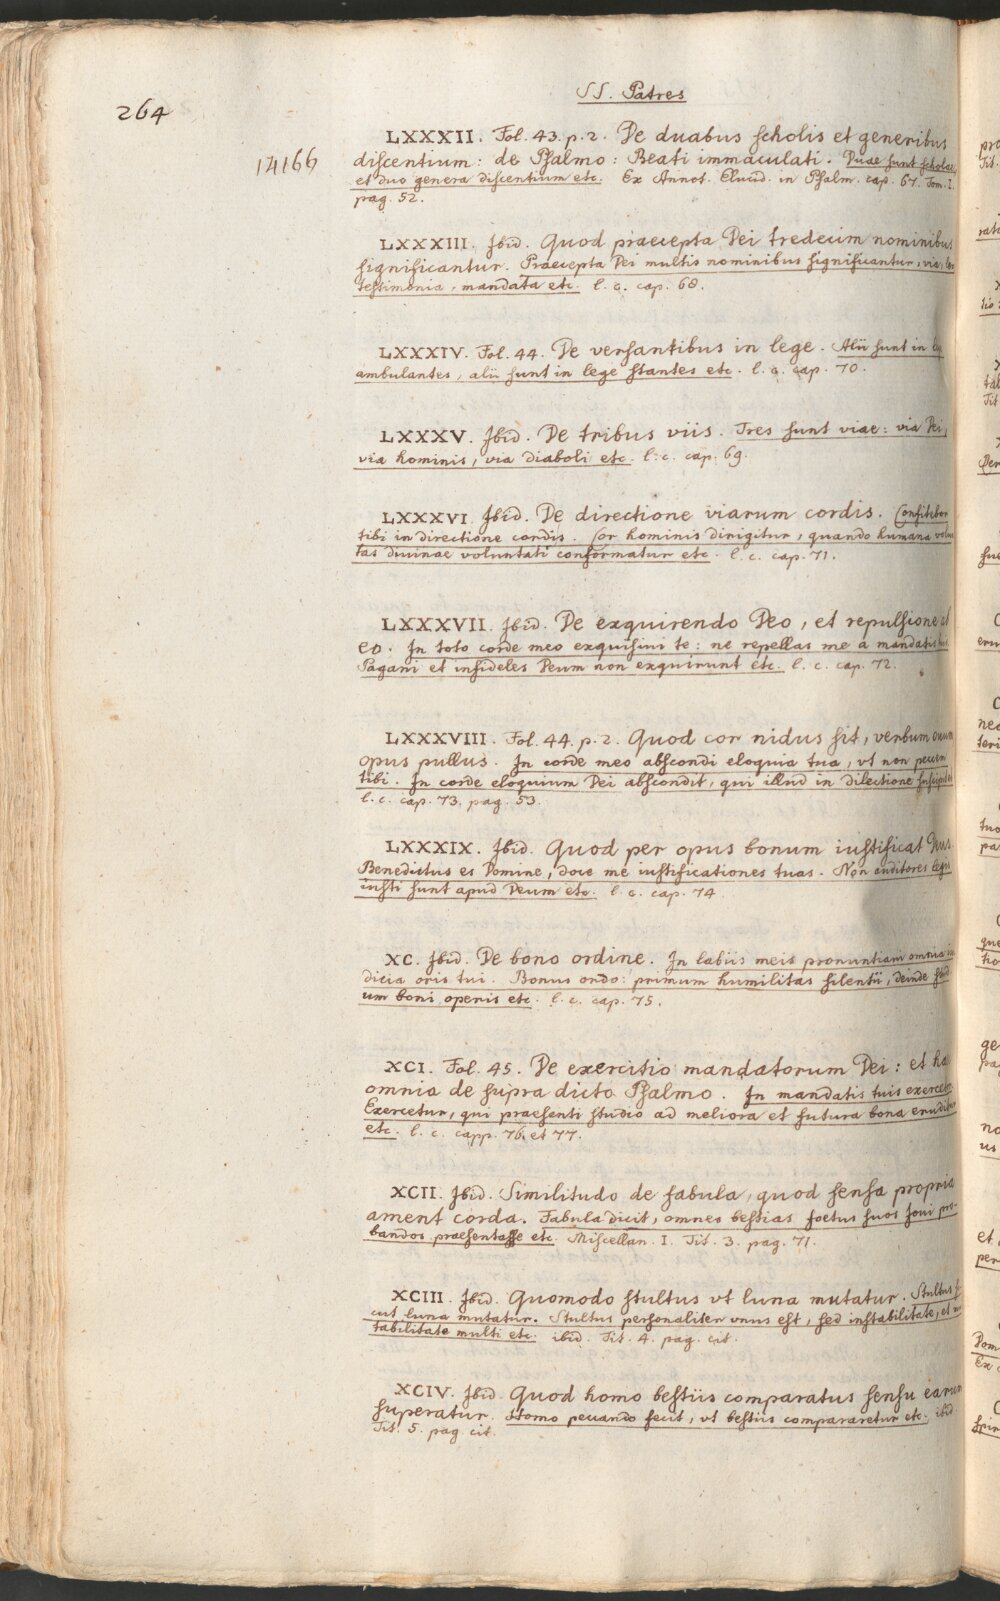 SS. Patres
264
LXXXII. Fol. 43. p. 2. De duabus scholis et generibus
14166 discentium: de Psalmo: Beati immaculati. Duae sunt scholae,
et duo genera discentium etc. Ex Annot. Elucid. in Psalm. cap. 67. Tom. I.
pag. 52.
LXXXIII. Ibid. Quod praecepta Dei tredecim nominibus
significantur. Praecepta Dei multis nominibus significantur, via,
testimonia, mandata etc. l. c. cap. 68.
LXXXIV. Fol. 44. De versantibus in lege. Alii sunt in
ambulantes, alii sunt in lege stantes etc. l. c. cap. 70.
LXXXV. Ibid. De tribus viis. Tres sunt viae: via Dei,
via hominis, via diaboli etc. l. c. cap. 69.
LXXXVI. Ibid. De directione viarum cordis. Confitebor
tibi in directione cordis. Cor hominis dirigitur, quando humana volun
tas divinae voluntati conformatur etc. l. c. cap. 71.
LXXXVII. Ibid. De exquirendo Deo, et repulsione ab
eo. In toto corde meo exquisivi te: ne repellas me a mandatis
Pagani et infideles Deum non exquirunt etc. l. c. cap. 72.
LXXXVIII. Fol. 44. p. 2. Quod cor nidus sit, verbum ovum
opus pullus. In corde meo abscondi eloquia tua, vt non peccem
tibi. In corde eloquium Dei abscondit, qui illud in dilectione
l. c. cap. 73. pag. 53.
LXXXIX. Ibid. Quod per opus bonum iustificat
Benedictus es Domine, doce me iustificationes tuas. Non auditores legis
iusti sunt apud Deum etc. l. c. cap. 74.
XC. Ibid. De bono ordine. In labiis meis pronuntiavi omnia iu
dicia oris tui. Bonus ordo: primum humilitas silentii, deinde
um boni operis etc. l. c. cap. 75.
XCI. Fol. 45. De exercitio mandatorum Dei: et
omnia de supra dicto Psalmo. In mandatis tuis
Exercetur, qui praesenti studio ad meliora et futura bona eruditur
etc. l. c. capp. 76. et 77.
XCII. Ibid. Similitudo de fabula, quod sensa propria
ament corda. Fabula dicit, omnes bestias foetus suos Ioui pro-
bandos praesentasse etc. Miscellan. I. Tit. 3. pag. 71.
XCIII. Ibid. Quomodo stultus vt luna mutatur. Stultus
cut luna mutatur. Stultus personaliter vnus est, sed instabilitate, et
tabilitate multi etc. ibid. Tit. 4. pag. cit.
XCIV. Ibid. Quod homo bestiis comparatus sensu earum
superatur. Homo peccando fecit, vt bestiis compararetur etc. ibid.
Tit. 5. pag. cit.